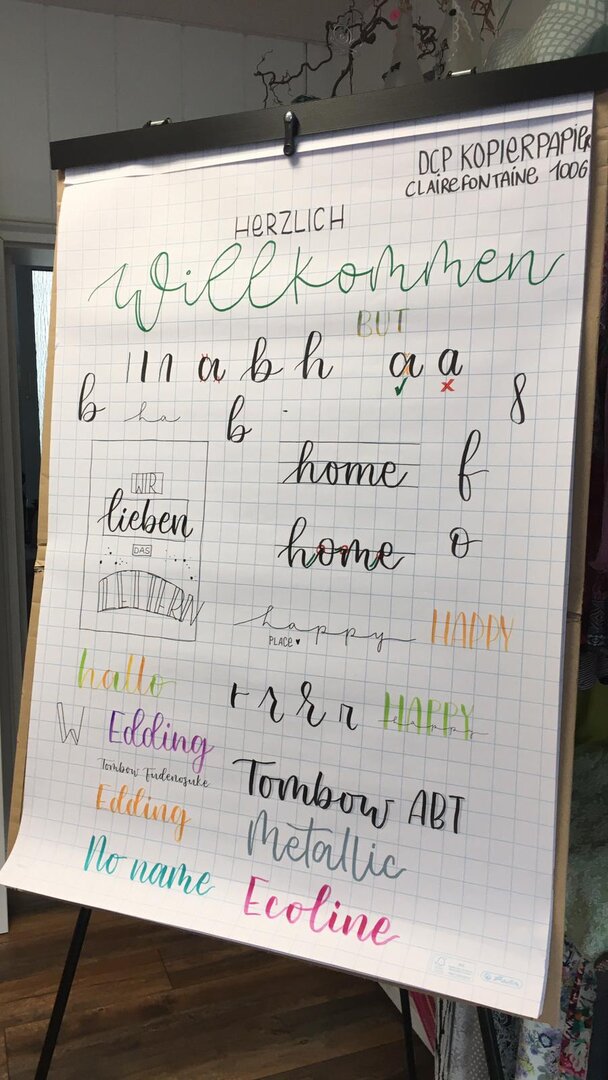 DCP KOPIERPAPIER
CLAIREFONTAINE 100G
HERZLICH
willkommen
BUT
a b h a a
b ha b 8
home f
WIR
lieben
DAS
LETTERN
home o
happy HAPPY
PLACE ♥
hallo
r r r r HAPPY
happy
W Edding
Tombow Fudenosuke
Tombow ABT
Edding
Metallic
No name
Ecoline